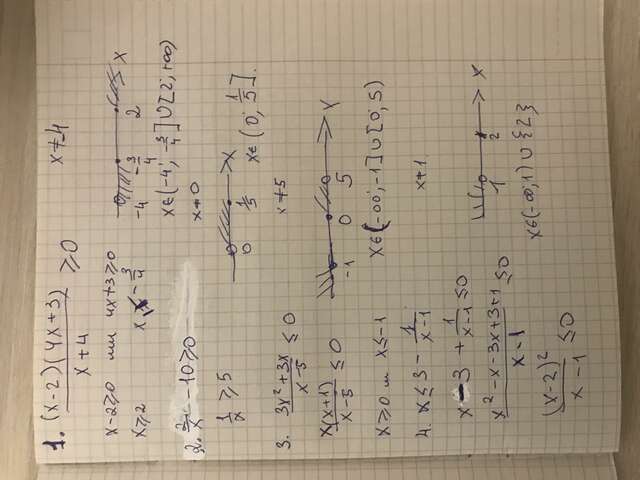 1. (x-2)(4x+3)/(x+4) ≥ 0    x≠-4
x-2≥0 или 4x+3≥0
x≥2    x≤-3/4
-4  -3/4  2  x
x∈(-4; -3/4]∪[2; +∞)
2. 2/x -10≥0    x≠0
1/x ≥5
0  1/5  x
x∈(0; 1/5].
3. (3x²+3x)/(x-5) ≤ 0    x≠5
x(x+1)/(x-5) ≤ 0
-1  0  5  x
x≥0 и x≤-1    x∈(-∞; -1]∪[0; 5)
4. x≤3 - 1/(x-1)    x≠1
x-3 + 1/(x-1) ≤0
(x²-x-3x+3+1)/(x-1) ≤0
(x-2)²/(x-1) ≤0
1  2  x
x∈(-∞; 1)∪{2}